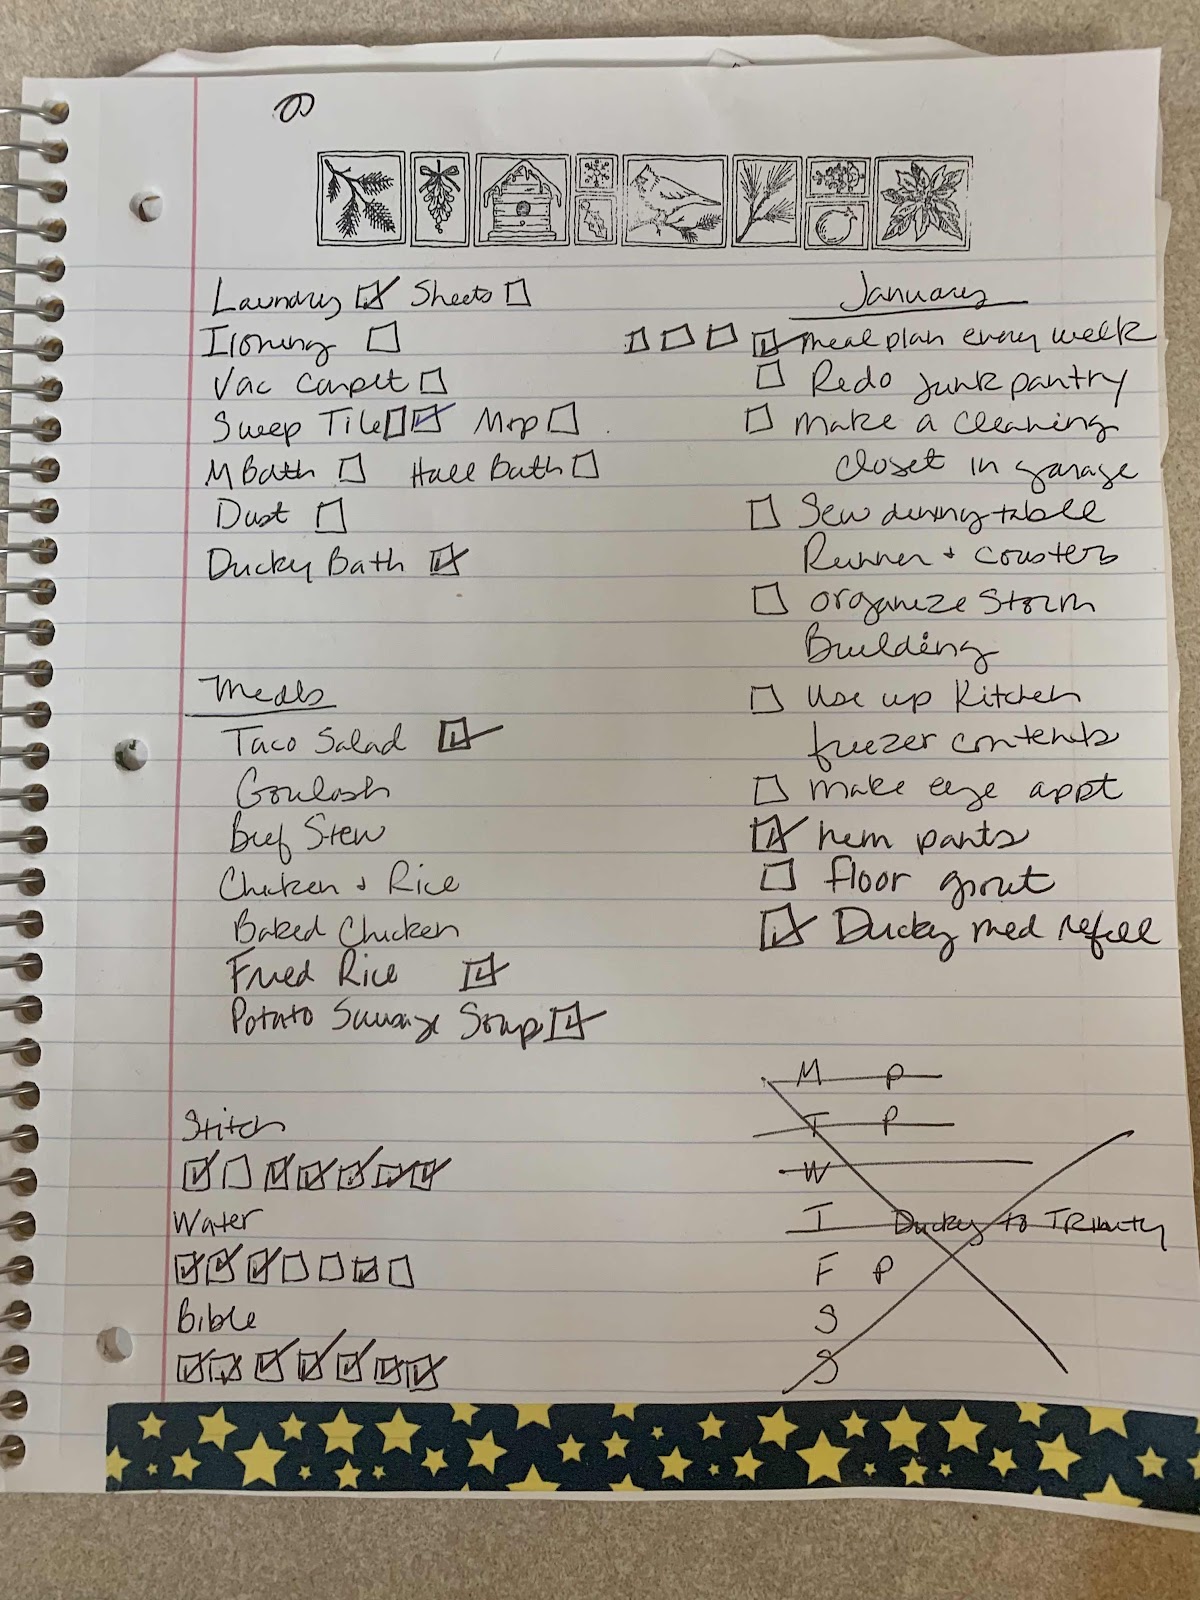 6
Laundry ☑ Sheets ☐
Ironing ☐
Vac Carpet ☐
Sweep Tile ☐ ☑ Mop ☐
M Bath ☐ Hall Bath ☐
Dust ☐
Ducky Bath ☑
Meals
Taco Salad ☑
Goulash
Beef Stew
Chicken & Rice
Baked Chicken
Fried Rice ☑
Potato Sausage Soup ☑
Stitch
☑ ☐ ☑ ☑ ☑ ☑ ☑
Water
☑ ☑ ☑ ☐ ☐ ☑ ☐
Bible
☑ ☑ ☑ ☑ ☑ ☑ ☑
January
☐ ☐ ☐ ☑ meal plan every week
☐ Redo junk pantry
☐ make a cleaning
closet in garage
☐ Sew dining table
Runner & coasters
☐ organize Storm
Building
☐ Use up Kitchen
freezer contents
☐ make eye appt
☑ hem pants
☐ floor grout
☑ Ducky med refill
M P
T P
W
T Ducky to Trinity
F P
S
S